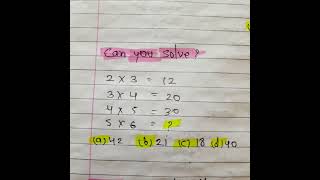 Can you solve?
2 × 3 = 12
3 × 4 = 20
4 × 5 = 30
5 × 6 = ?
(a) 42 (b) 21 (c) 18 (d) 40